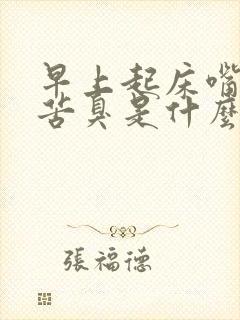 早上起床嘴
苦臭是什麼
張福德